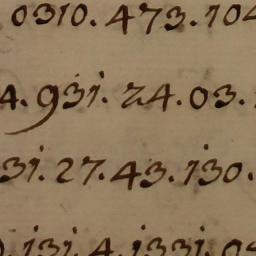 0310. 473. 104
4. 931. 24. 03.
31. 27. 43. 130.
0. 131. 4. 1331. 04